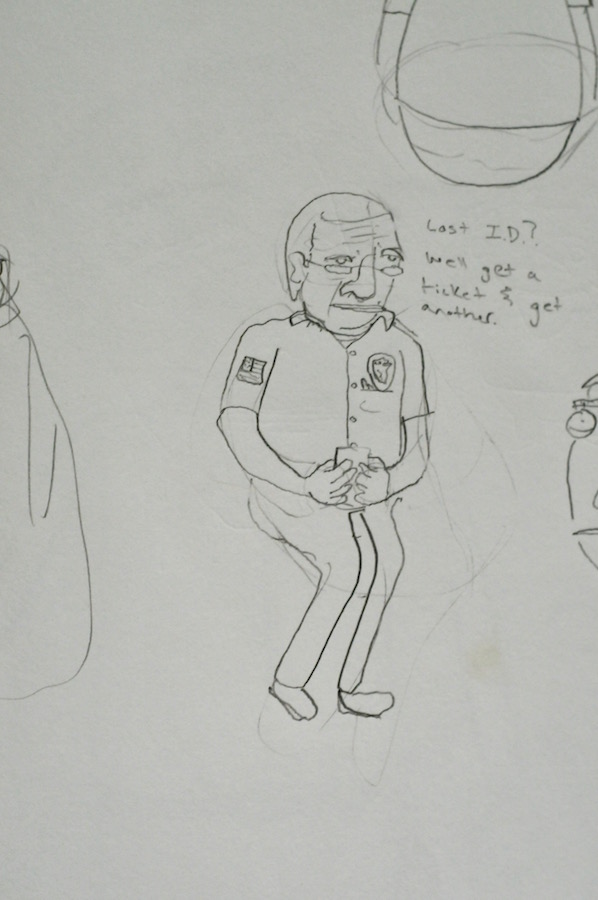 Lost I.D.?
Well get a
ticket & get
another.